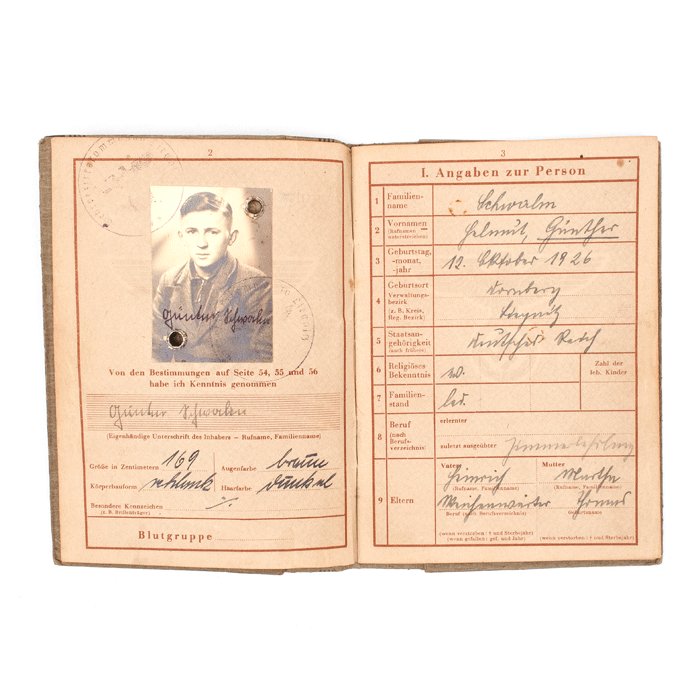 2
Günter Schwalm
Von den Bestimmungen auf Seite 54, 55 und 56
habe ich Kenntnis genommen
Günter Schwalm
(Eigenhändige Unterschrift des Inhabers – Rufname, Familienname)
Größe in Zentimetern 169 Augenfarbe braun
Körperbauform schlank Haarfarbe dunkel
Besondere Kennzeichen
(z. B. Brillenträger)
Blutgruppe
3
I. Angaben zur Person
1 Familien-
name Schwalm
2 Vornamen
(Rufnamen
unterstreichen) Helmut, Günther
3 Geburtstag,
-monat,
-jahr 12. Oktober 1926
4 Geburtsort
Verwaltungs-
bezirk
(z. B. Kreis,
Reg. Bezirk) Liegnitz
5 Staatsan-
gehörigkeit
(auch frühere) Deutsches Reich
6 Religiöses
Bekenntnis
Zahl der
leb. Kinder
7 Familien-
stand led.
8 Beruf
(nach
Berufs-
verzeichnis)
erlernter
zuletzt ausgeübter
9 Eltern
Vater Mutter
Heinrich Martha
(Rufname, Familienname) (Rufname, Familienname)
Weichenwärter
Beruf (nach Berufsverzeichnis) Geburtsname
(wenn verstorben: † und Sterbejahr)
(wenn gefallen: gef. und Jahr)
(wenn verstorben: † und Sterbejahr)